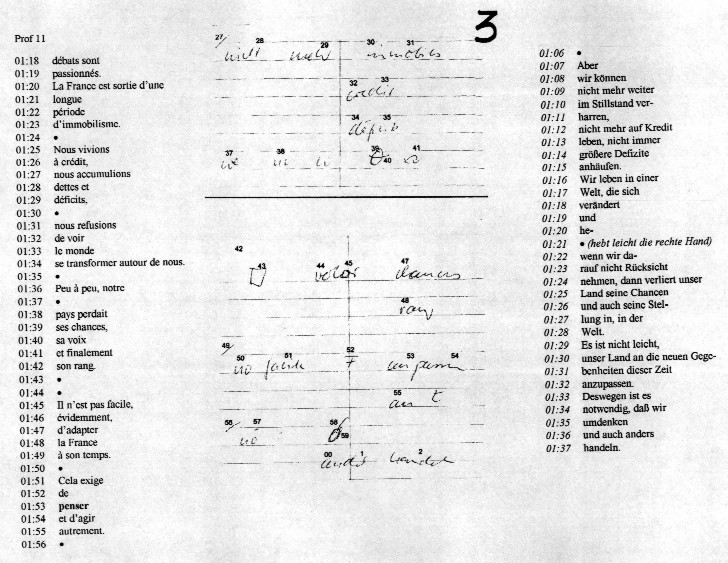 3
Prof 11
01:18 débats sont
01:19 passionnés.
01:20 La France est sortie d'une
01:21 longue
01:22 période
01:23 d'immobilisme.
01:24 •
01:25 Nous vivions
01:26 à crédit,
01:27 nous accumulions
01:28 dettes et
01:29 déficits,
01:30 •
01:31 nous refusions
01:32 de voir
01:33 le monde
01:34 se transformer autour de nous.
01:35 •
01:36 Peu à peu, notre
01:37 •
01:38 pays perdait
01:39 ses chances,
01:40 sa voix
01:41 et finalement
01:42 son rang.
01:43 •
01:44 •
01:45 Il n'est pas facile,
01:46 évidemment,
01:47 d'adapter
01:48 la France
01:49 à son temps.
01:50 •
01:51 Cela exige
01:52 de
01:53 penser
01:54 et d'agir
01:55 autrement.
01:56 •
27 28 29 30 31
32 33
34 35
37 38 39 40 41
42
43 44 45 47
48
rang
49
50 51 52 53 54
55
56 57 58 59
00 1 2
01:06 •
01:07 Aber
01:08 wir können
01:09 nicht mehr weiter
01:10 im Stillstand ver-
01:11 harren,
01:12 nicht mehr auf Kredit
01:13 leben, nicht immer
01:14 größere Defizite
01:15 anhäufen.
01:16 Wir leben in einer
01:17 Welt, die sich
01:18 verändert
01:19 und
01:20 he-
01:21 • (hebt leicht die rechte Hand)
01:22 wenn wir da-
01:23 rauf nicht Rücksicht
01:24 nehmen, dann verliert unser
01:25 Land seine Chancen
01:26 und auch seine Stel-
01:27 lung in, in der
01:28 Welt.
01:29 Es ist nicht leicht,
01:30 unser Land an die neuen Gege-
01:31 benheiten dieser Zeit
01:32 anzupassen.
01:33 Deswegen ist es
01:34 notwendig, daß wir
01:35 umdenken
01:36 und auch anders
01:37 handeln.